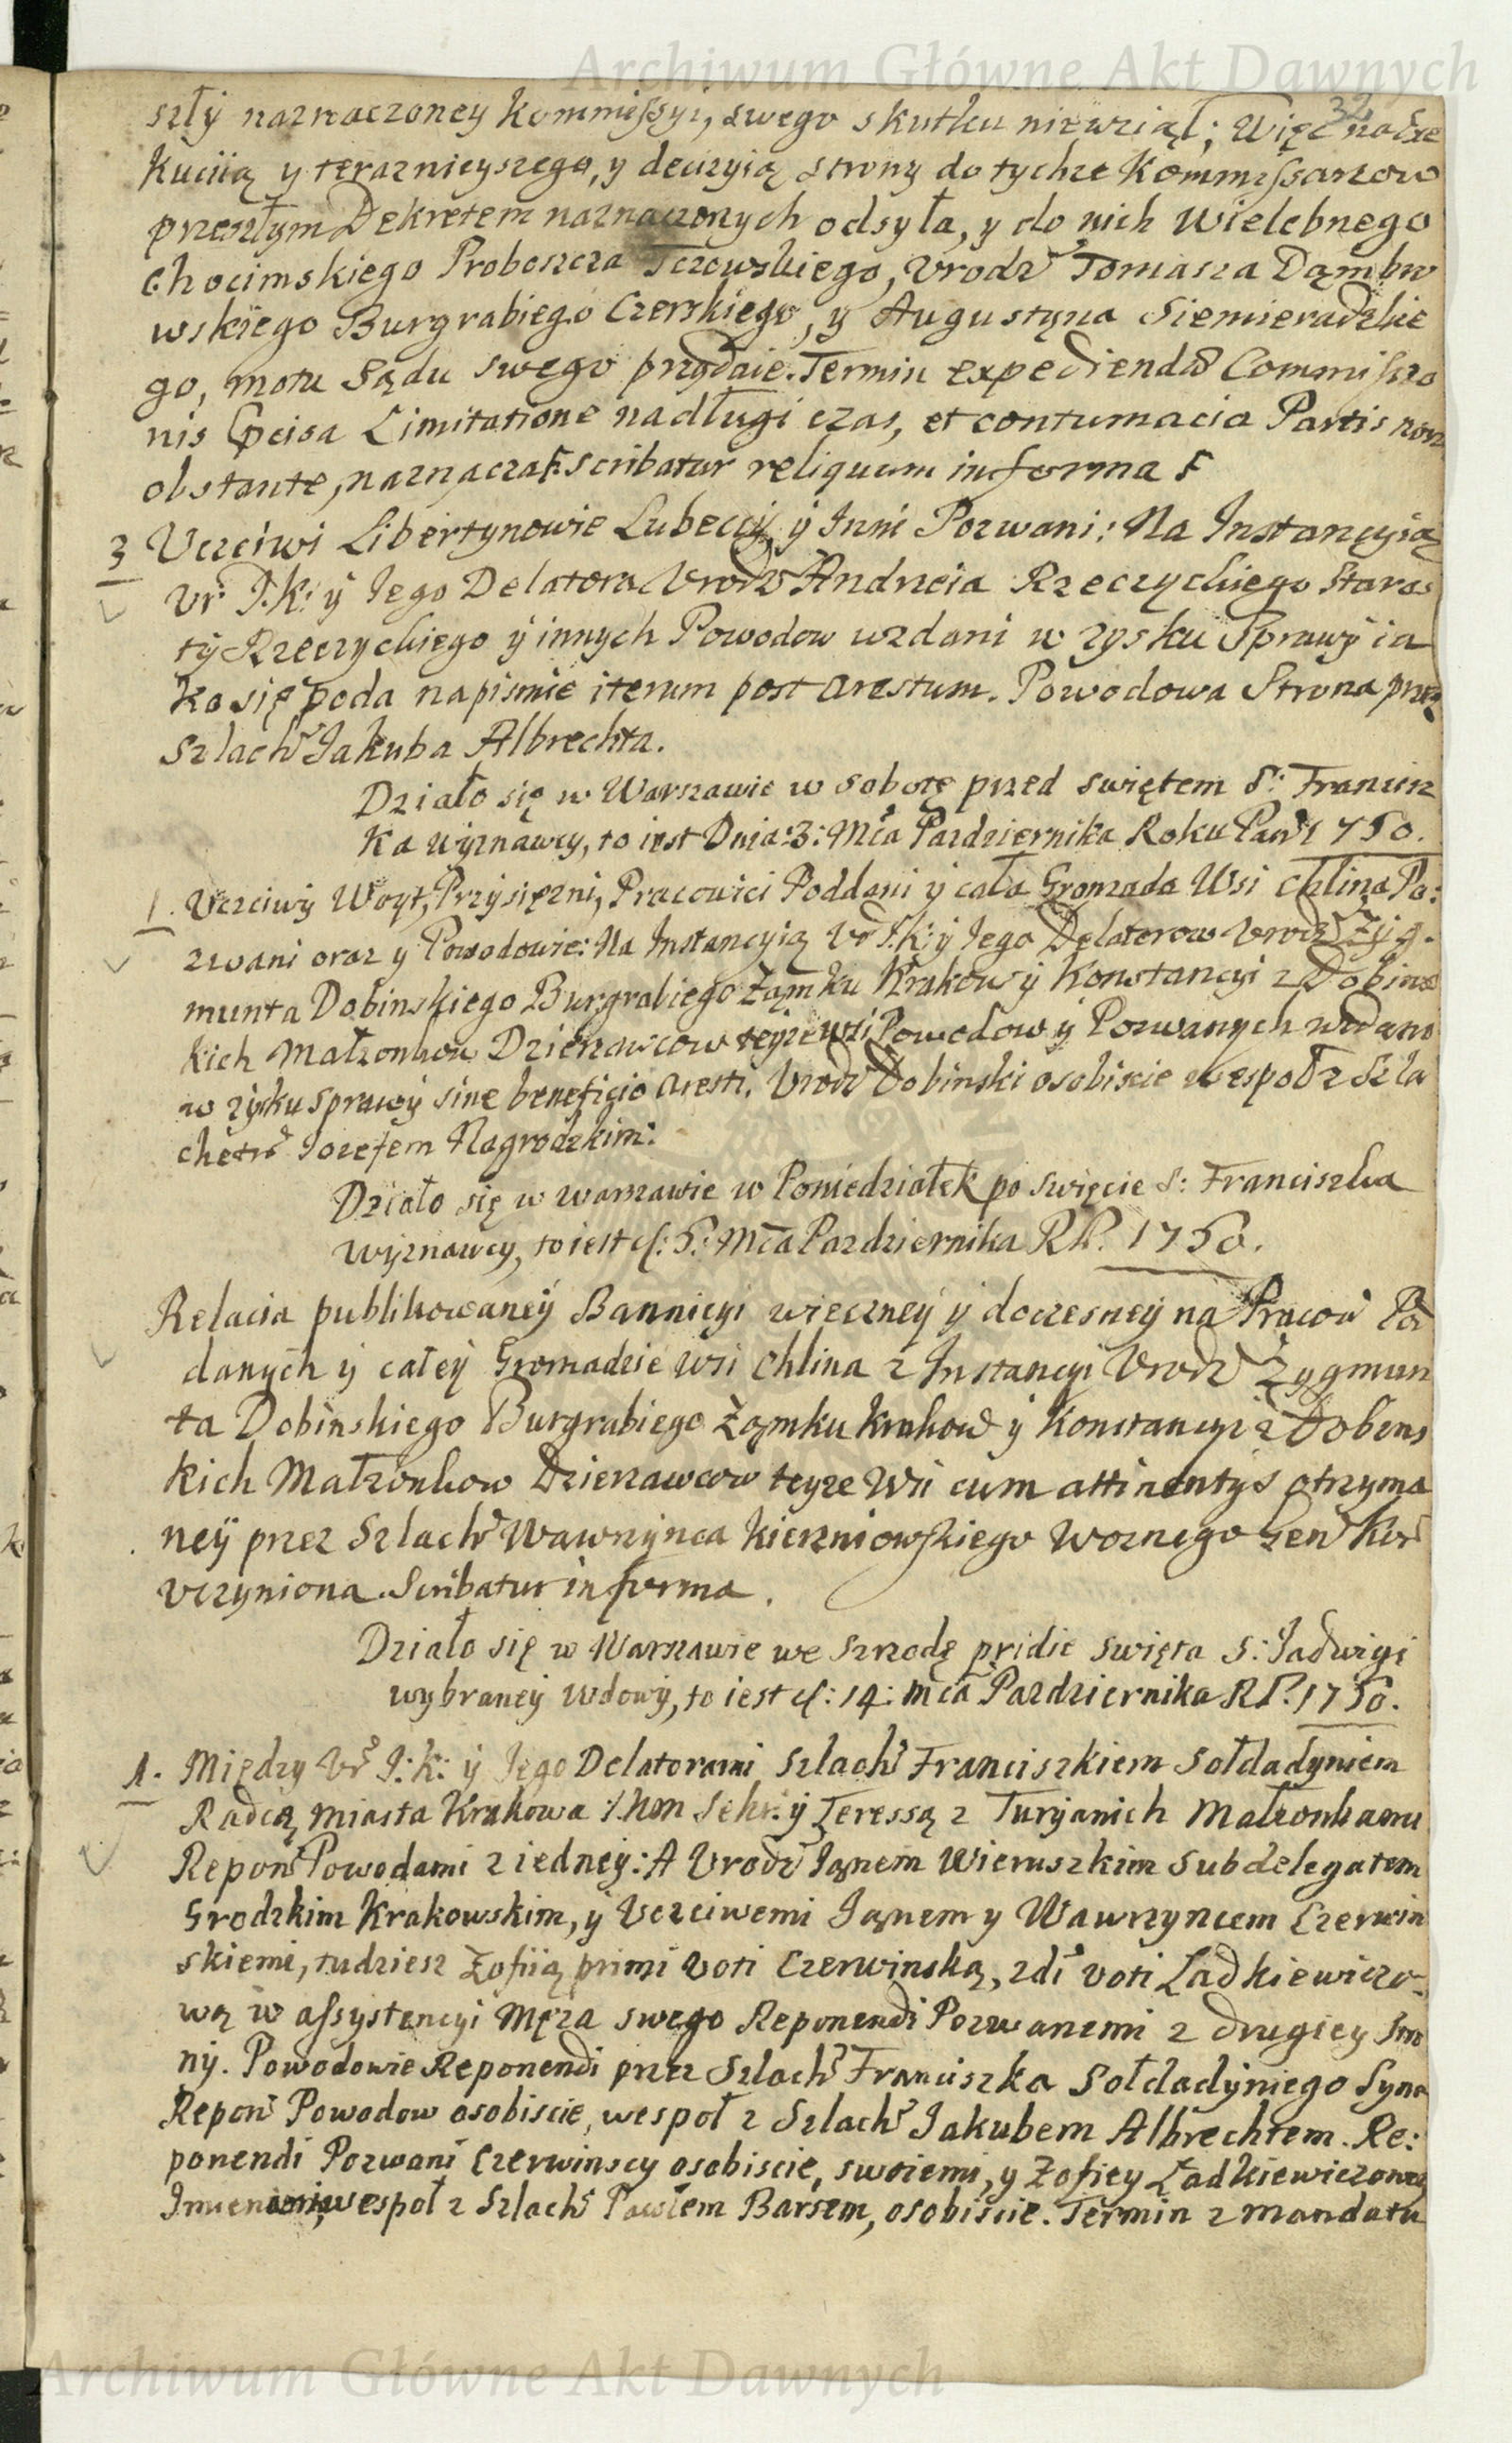 Archiwum Główne Akt Dawnych
32
szły naznaczoney Kommissyi, swego skutku niewziął; Więc na Exe
kuciią y teraznieyszego, y decizyią strony do tychze Kommissarzow
przeszłym Dekretem naznaczonych odsyła, y do nich Wielebnego
Chocimskiego Proboszcza Tczewskiego, Vrodz Tomasza Dąmbro
wskiego Burgrabiego Czerskiego, y Augustyna Siemieradzkie
go, motu Sądu swego przydaie. Termin expediendae Commissio
nis Limitatione na długi czas, et contumacia Partis non
obstante, naznacza. Scribatur reliquum in forma
3 Vczciwi Libertynowie Lubeccy, y Inni Pozwani: Na Instancyią
Vr: I:K: y Iego Delatora Vrodz Andrzeia Rzeczyckiego Staros
ty Rzeczyckiego y innych Powodow wzdani w zysku Sprawy ia
ko się poda napismie iterum post arestum. Powodowa Strona przez
Szlach Jakuba Albrechta.
Działo się w Warszawie w Sobotę przed swiętem S: Francisz
ka wyznawcy, to iest Dnia: 3: Mca Pazdziernika Roku Pan 1750.
1. Vczciwy Woyt, Przysięzni, Pracowici Poddani y cała Gromada Wsi Chlina Po:
zwani oraz y Powodowie: Na Instancyią Vr I:K: y Iego Delatorow Vrodz Zyg.
munta Dobinskiego Burgrabiego Zamku Krakow y Konstancyi z Dobins
kich Małzonkow Dzierzawcow teyze wsi Powodow y Pozwanych wzdani
w zysku sprawy sine beneficio aresti. Vrodz Dobinski osobiscie wespoł z Szla
chetn Iozefem Nagrodzkim:
Działo się w Warszawie w Poniedziałek po swięcie S: Franciszka
Wyznawcy, to iest d: 5: Mca Pazdziernika R P. 1750.
Relacia publikowaney Bannicyi wieczney y doczesney na Pracow Pod
danych y całey Gromadzie wsi Chlina z Instancyi Vrodz Zygmun
ta Dobinskiego Burgrabiego Zamku Krakow y Konstancyi z Dobins
kich Małzonkow Dzierzawcow teyze Wsi cum attinentys otrzyma
ney przez Szlach Wawrzynca Kierzniowskiego Woznego Gen Kor
vczyniona. Scribatur in forma.
Działo się w Warszawie we Szrodę pridie swięta S: Jadwigi
wybraney Wdowy, to iest d: 14: mca Pazdziernika R P. 1750.
1. Między Vr I:K: y Iego Delatorami Szlach Franciszkiem Sołdadyniem
Radcą Miasta Krakowa y Teressą z Turyanich Małzonkami
Repon Powodami z iedney: A Vrodz Ianem Wieruszkim Subdelegatem
Grodzkim Krakowskim, y Vczciwemi Ianem y Wawrzyncem Czerwin
skiemi, tudziesz Zofiią primi voti Czerwinską, 2di voti Ladkiewiczo-
wą w assystencyi Męza swego Reponendi Pozwanemi z drugiey stro
ny. Powodowie Reponendi przez Szlach Franciszka Sołdadyniego Syna
Repon Powodow osobiscie, wespoł z Szlach Jakubem Albrechtem. Re:
ponendi Pozwani Czerwinscy osobiscie, swoiemi, y Zofiey Ladkiewiczowey
Imieniem, wespoł z Szlach Pawłem Barsem, osobiscie. Termin z Mandatu
Archiwum Główne Akt Dawnych